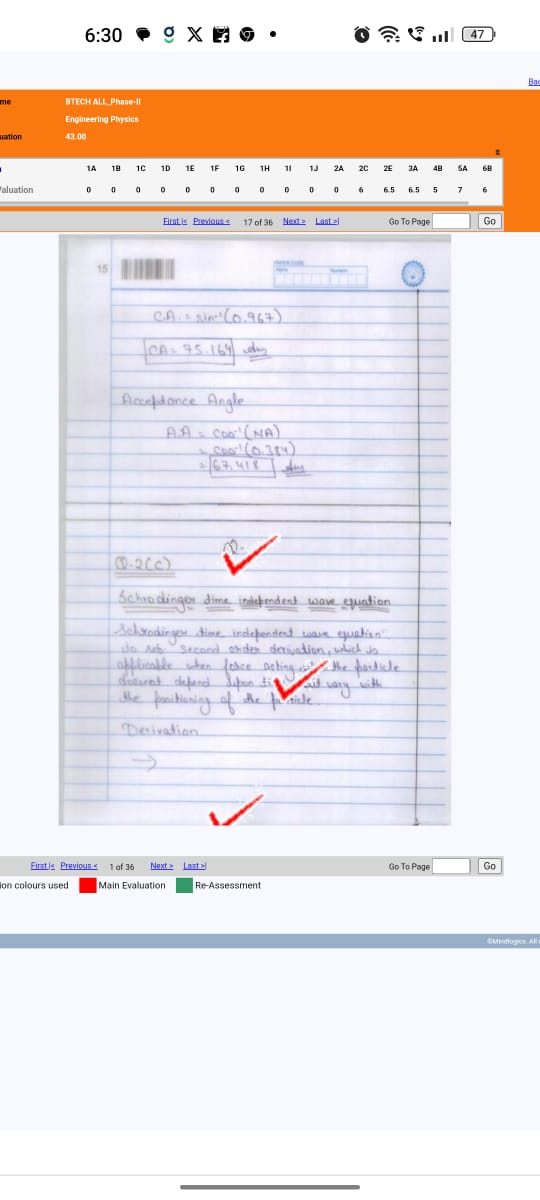 6:30
47
Bac
me
BTECH ALL_Phase-II
Engineering Physics
uation
43.00
1A 1B 1C 1D 1E 1F 1G 1H 1I 1J 2A 2C 2E 3A 4B 5A 6B
Valuation 0 0 0 0 0 0 0 0 0 0 0 6 6.5 6.5 5 7 6
First |< Previous < 17 of 36 Next > Last >| Go To Page Go
15
PAPER CODE
C.A. = sin⁻¹(0.967)
CA = 75.164
Acceptance Angle
A.A = cos⁻¹(NA)
= cos⁻¹(0.384)
= 67.418
Q.2(c)
Schrodinger time independent wave equation
Schrodinger time independent wave equation
is second order derivation, which is
applicable when force acting the particle
doesnt depend upon vary with
the positioning of the particle.
Derivation
→
First |< Previous < 1 of 36 Next > Last >| Go To Page Go
ion colours used Main Evaluation Re-Assessment
©Mindlogicx. All